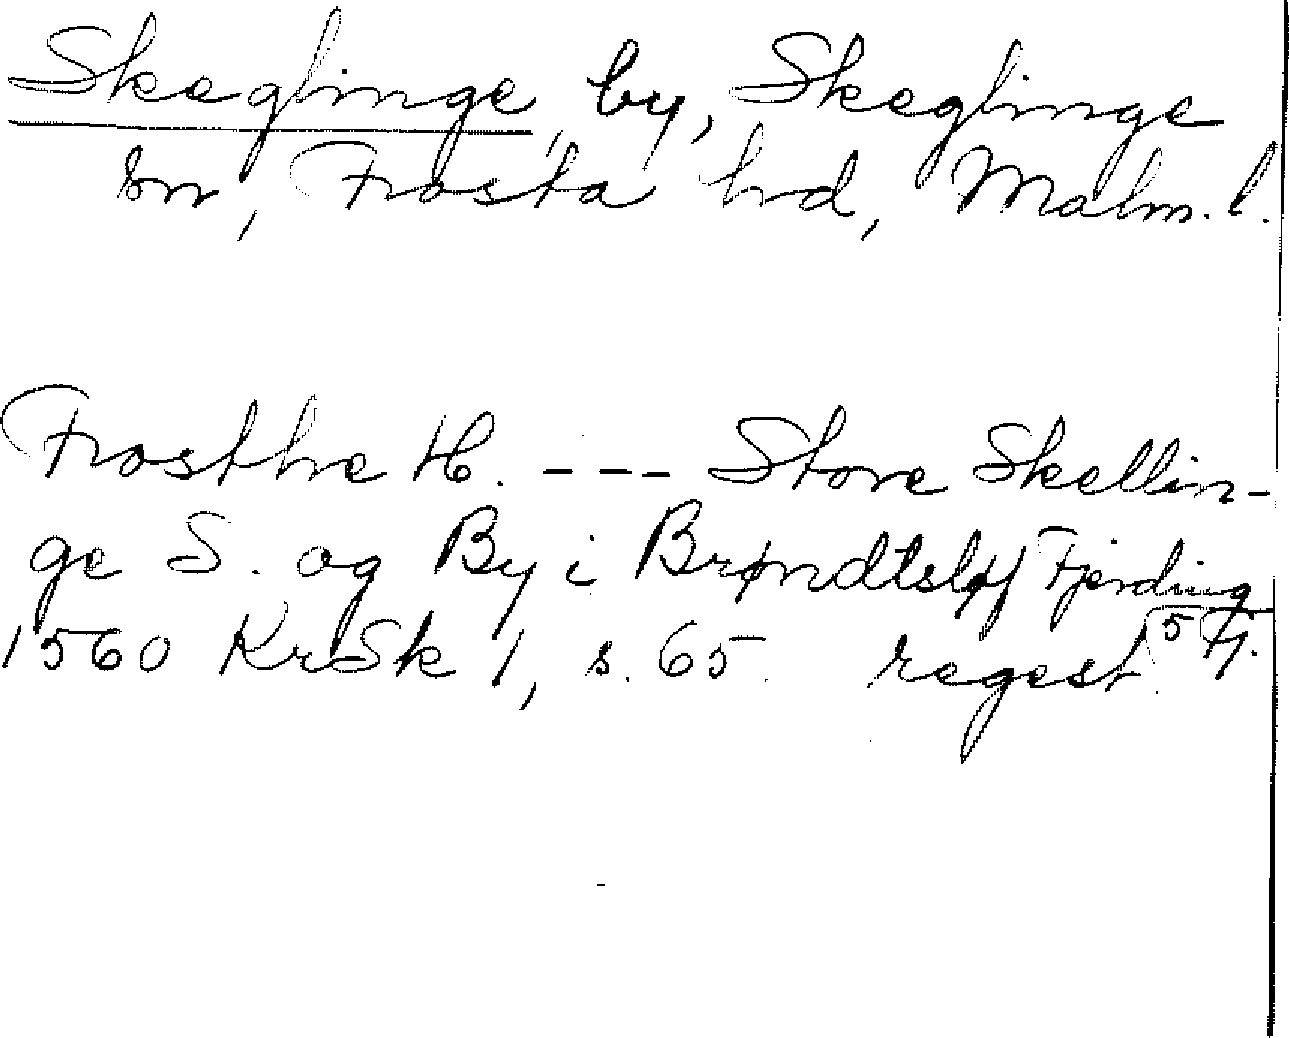 Skeglinge, by, Skeglinge
sn, Frosta hd, Malm. l.
Frosthe H. --- Store Skellin-
ge S. og By i Brøndtsløf Fjerding
1560 KrSk 1, s. 65. regest. 5